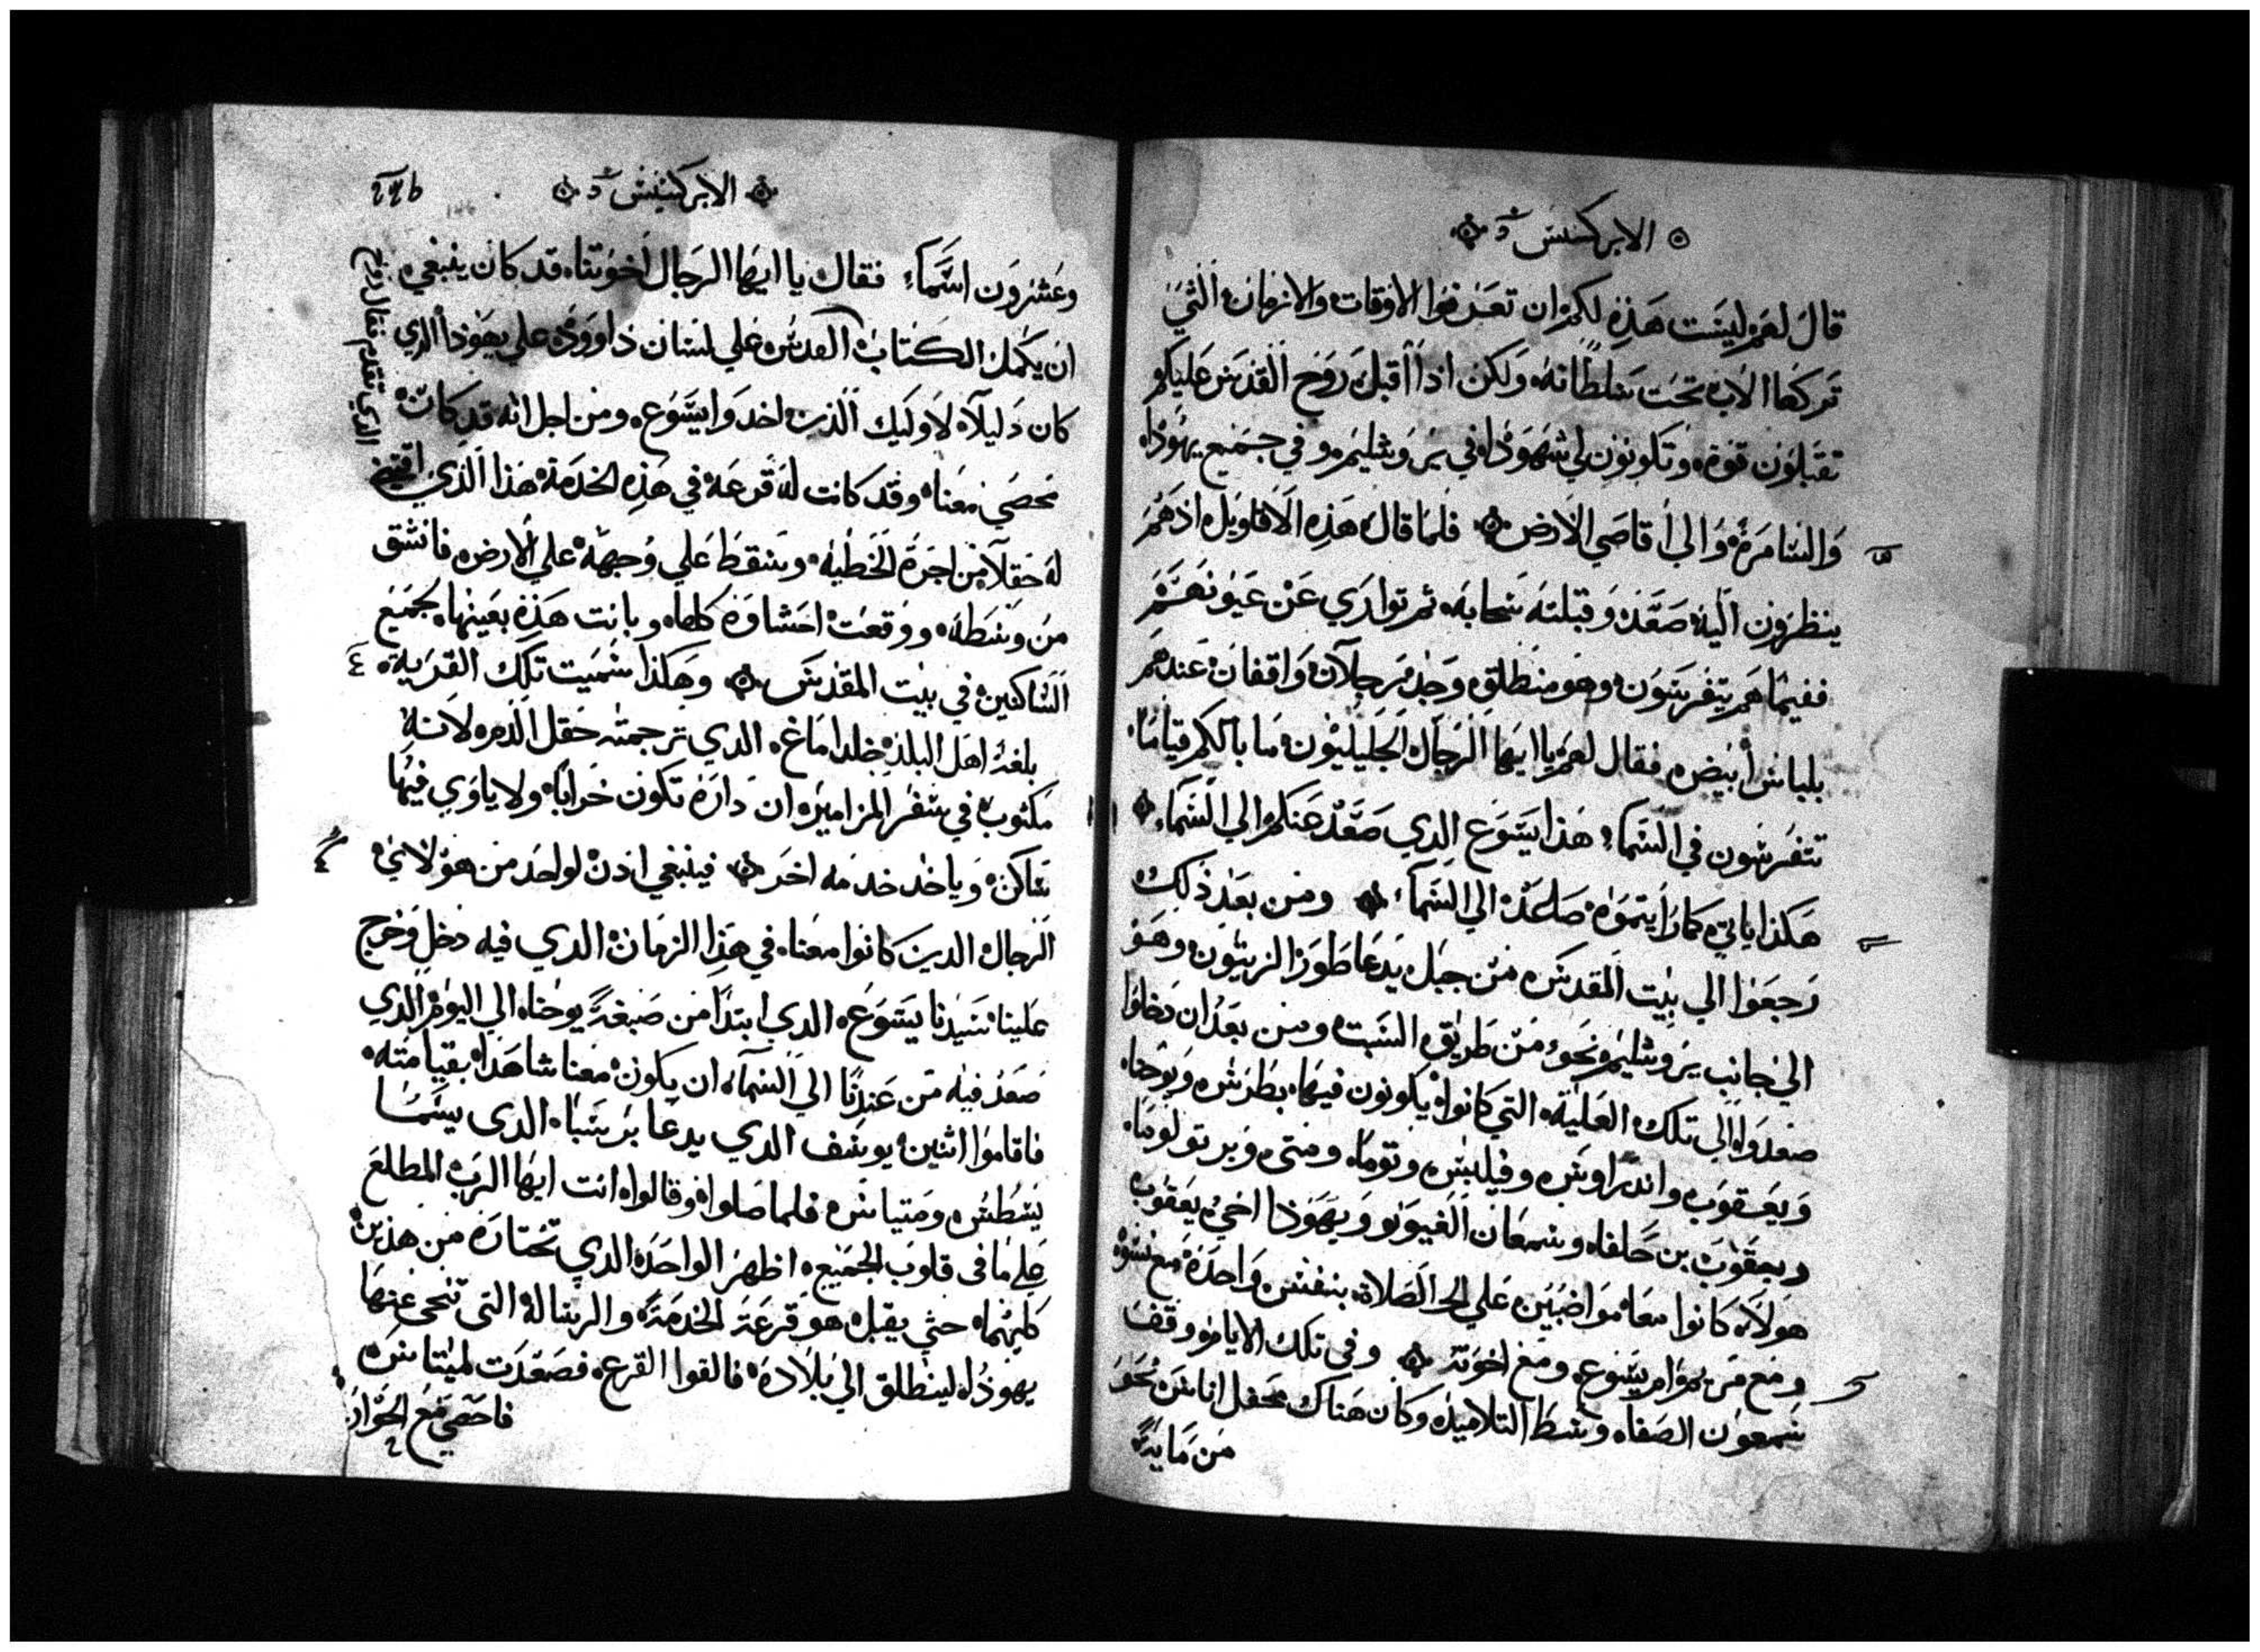 الابركسيس
قال لهم ليست هذه لكم ان تعرفوا الاوقات والازمان التي
تركها الاب تحت سلطانه ولكن اذا اقبل روح القدس عليكم
تقبلون قوة وتكونون لي شهودا في يروشليم وفي جميع يهودا
والسامرة والي اقاصي الارض فلما قال هذه الاقاويل اذ هم
ينظرون اليه صعد وقبلته سحابه ثم تواري عن عيونهم
ففيما هم يتفرسون وهو منطلق وجد رجلان واقفان عندهم
بلباس ابيض فقال لهم يا ايها الرجال الجليليون ما بالكم قياما
تتفرسون في السماء هذا يسوع الدي صعد عنكم الي السماء
هكذا ياتي كما رايتموه صاعد الي السماء ومن بعد ذلك
رجعوا الي بيت المقدس من جبل يدعا طور الزيتون وهو
الي جانب يروشليم نحو من طريق السبت ومن بعد ان دخلوا
صعدوا الي تلك العلية التي كانوا يكونون فيها بطرس ويوحنا
ويعقوب واندراوس وفيلبس وتوما ومتي وبرتولوما
ويعقوب بن حلفا وسمعان الغيور ويهودا اخي يعقوب
هولاء كانوا معا مواضبين علي الصلاة بنفس واحدة مع نسوة
ومع مريم ام يسوع ومع اخوته وفي تلك الايام وقف
شمعون الصفا وسط التلاميذ وكان هناك محفل اناس نحو
من ماية
الابركسيس
وعشرون اسماء فقال يا ايها الرجال اخوتنا قد كان ينبغي
ان يكمل الكتاب القدس علي لسان داوود علي يهودا الذي
كان دليلا لاوليك الذين اخدوا يسوع ومن اجل انه قد كان
محصي معنا وقد كانت له قرعة في هذه الخدمة هذا الذي اقتني
له حقلا من اجرة الخطيه وسقط علي وجهه علي الارض فانشق
من وسطه ووقعت احشاوه كلها وبانت هذه بعينها لجميع
الساكنين في بيت المقدس وهكذا سميت تلك القرية
بلغة اهل البلد خلداماغ الدي ترجمته حقل الدم لانه
مكتوب في سفر المزامير ان دارة تكون خرابا ولا ياوي فيها
ساكن وياخد خدمه اخر فينبغي ادن لواحد من هولاي
الرجال الدين كانوا معنا في هذا الزمان الدي فيه دخل وخرج
علينا سيدنا يسوع الدي ابتدا من صبغة يوحنا الي اليوم الذي
صعد فيه من عندنا الي السماء ان يكون معنا شاهدا بقيامته
فاقاموا اثنين يوسف الدي يدعا برسبا الدى يسما
يسطس ومتياس فلما صلوا وقالوا انت ايها الرب المطلع
علي ما في قلوب الجميع اظهر الواحد الدي تختاره من هذين
كليهما حتي يقبل هو قرعة الخدمة والرسالة التي تنحي عنها
يهودا لينطلق الي بلاده فالقوا القرع فصعدت لميتاس
فاحصي مع الحوار
الذي تقدم فقال روح